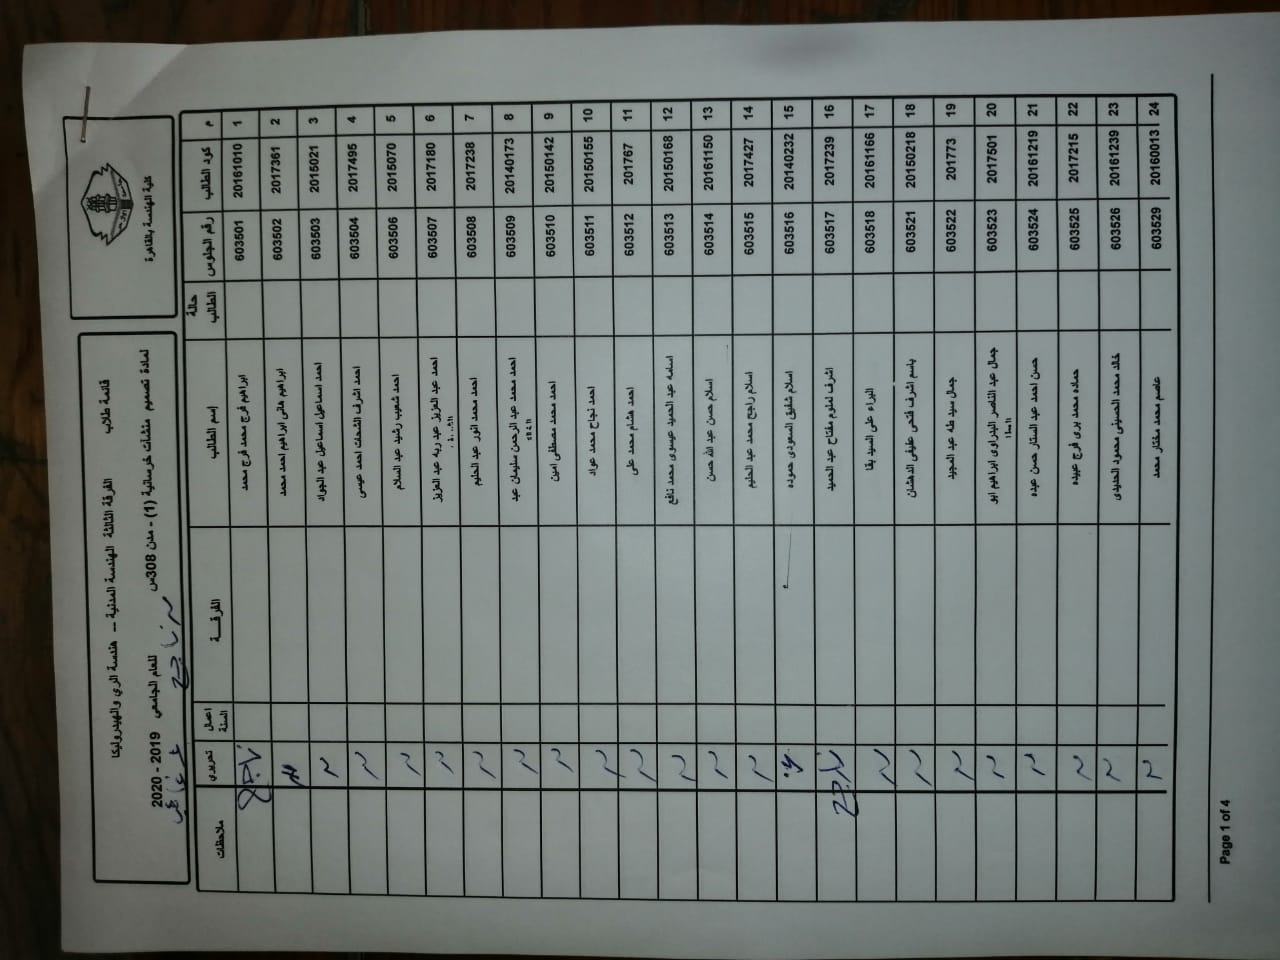 كلية الهندسة بالقاهرة
قائمة طلاب الفرقة الثالثة الهندسة المدنية – هندسة الري والهيدروليكا
لمادة تصميم منشآت خرسانية (1) - مدن 308س للعام الجامعي 2019 - 2020
ناجح
م كود الطالب رقم الجلوس حالة الطالب إسم الطالب الفرقة اعمال السنة تحريري ملاحظات
1 20161010 603501 ابراهيم فرج محمد فرج محمد ناجح
2 2017361 603502 ابراهيم هانى ابراهيم احمد محمد
3 2015021 603503 احمد اسماعيل اسماعيل عبد الجواد
4 2017495 603504 احمد اشرف الشحات احمد عيسى
5 2015070 603506 احمد شعيب رشيد عبد السلام
6 2017180 603507 احمد عبد العزيز عبد ربه عبد العزيز
7 2017238 603508 احمد محمد انور عبد الحليم
8 20140173 603509 احمد محمد عبد الرحمن سليمان عبد
9 20150142 603510 احمد محمد مصطفى امين
10 20150155 603511 احمد نجاح محمد عواد
11 201767 603512 احمد هشام محمد على
12 20150168 603513 اسامه عبد الحميد عيسوى محمد نافع
13 20161150 603514 اسلام حسن عبد الله حسن
14 2017427 603515 اسلام راجح محمد عبد الحليم
15 20140232 603516 اسلام شفيق السعودى حموده
16 2017239 603517 اشرف لملوم مفتاح عبد الحميد ناجح
17 20161166 603518 البراء على السيد بقا
18 20150218 603521 باسم اشرف فتحى عفيفى الدهشان
19 201773 603522 جمال سيد طه عبد المجيد
20 2017501 603523 جمال عبد الناصر البدراوى ابراهيم ابو العطا
21 20161219 603524 حسن احمد عبد الستار حسن عبده
22 2017215 603525 حماده محمد برى فرج عبيده
23 20161239 603526 خالد محمد الحسينى محمود الحديدى
24 20160013 603529 عاصم محمد مختار محمد
Page 1 of 4